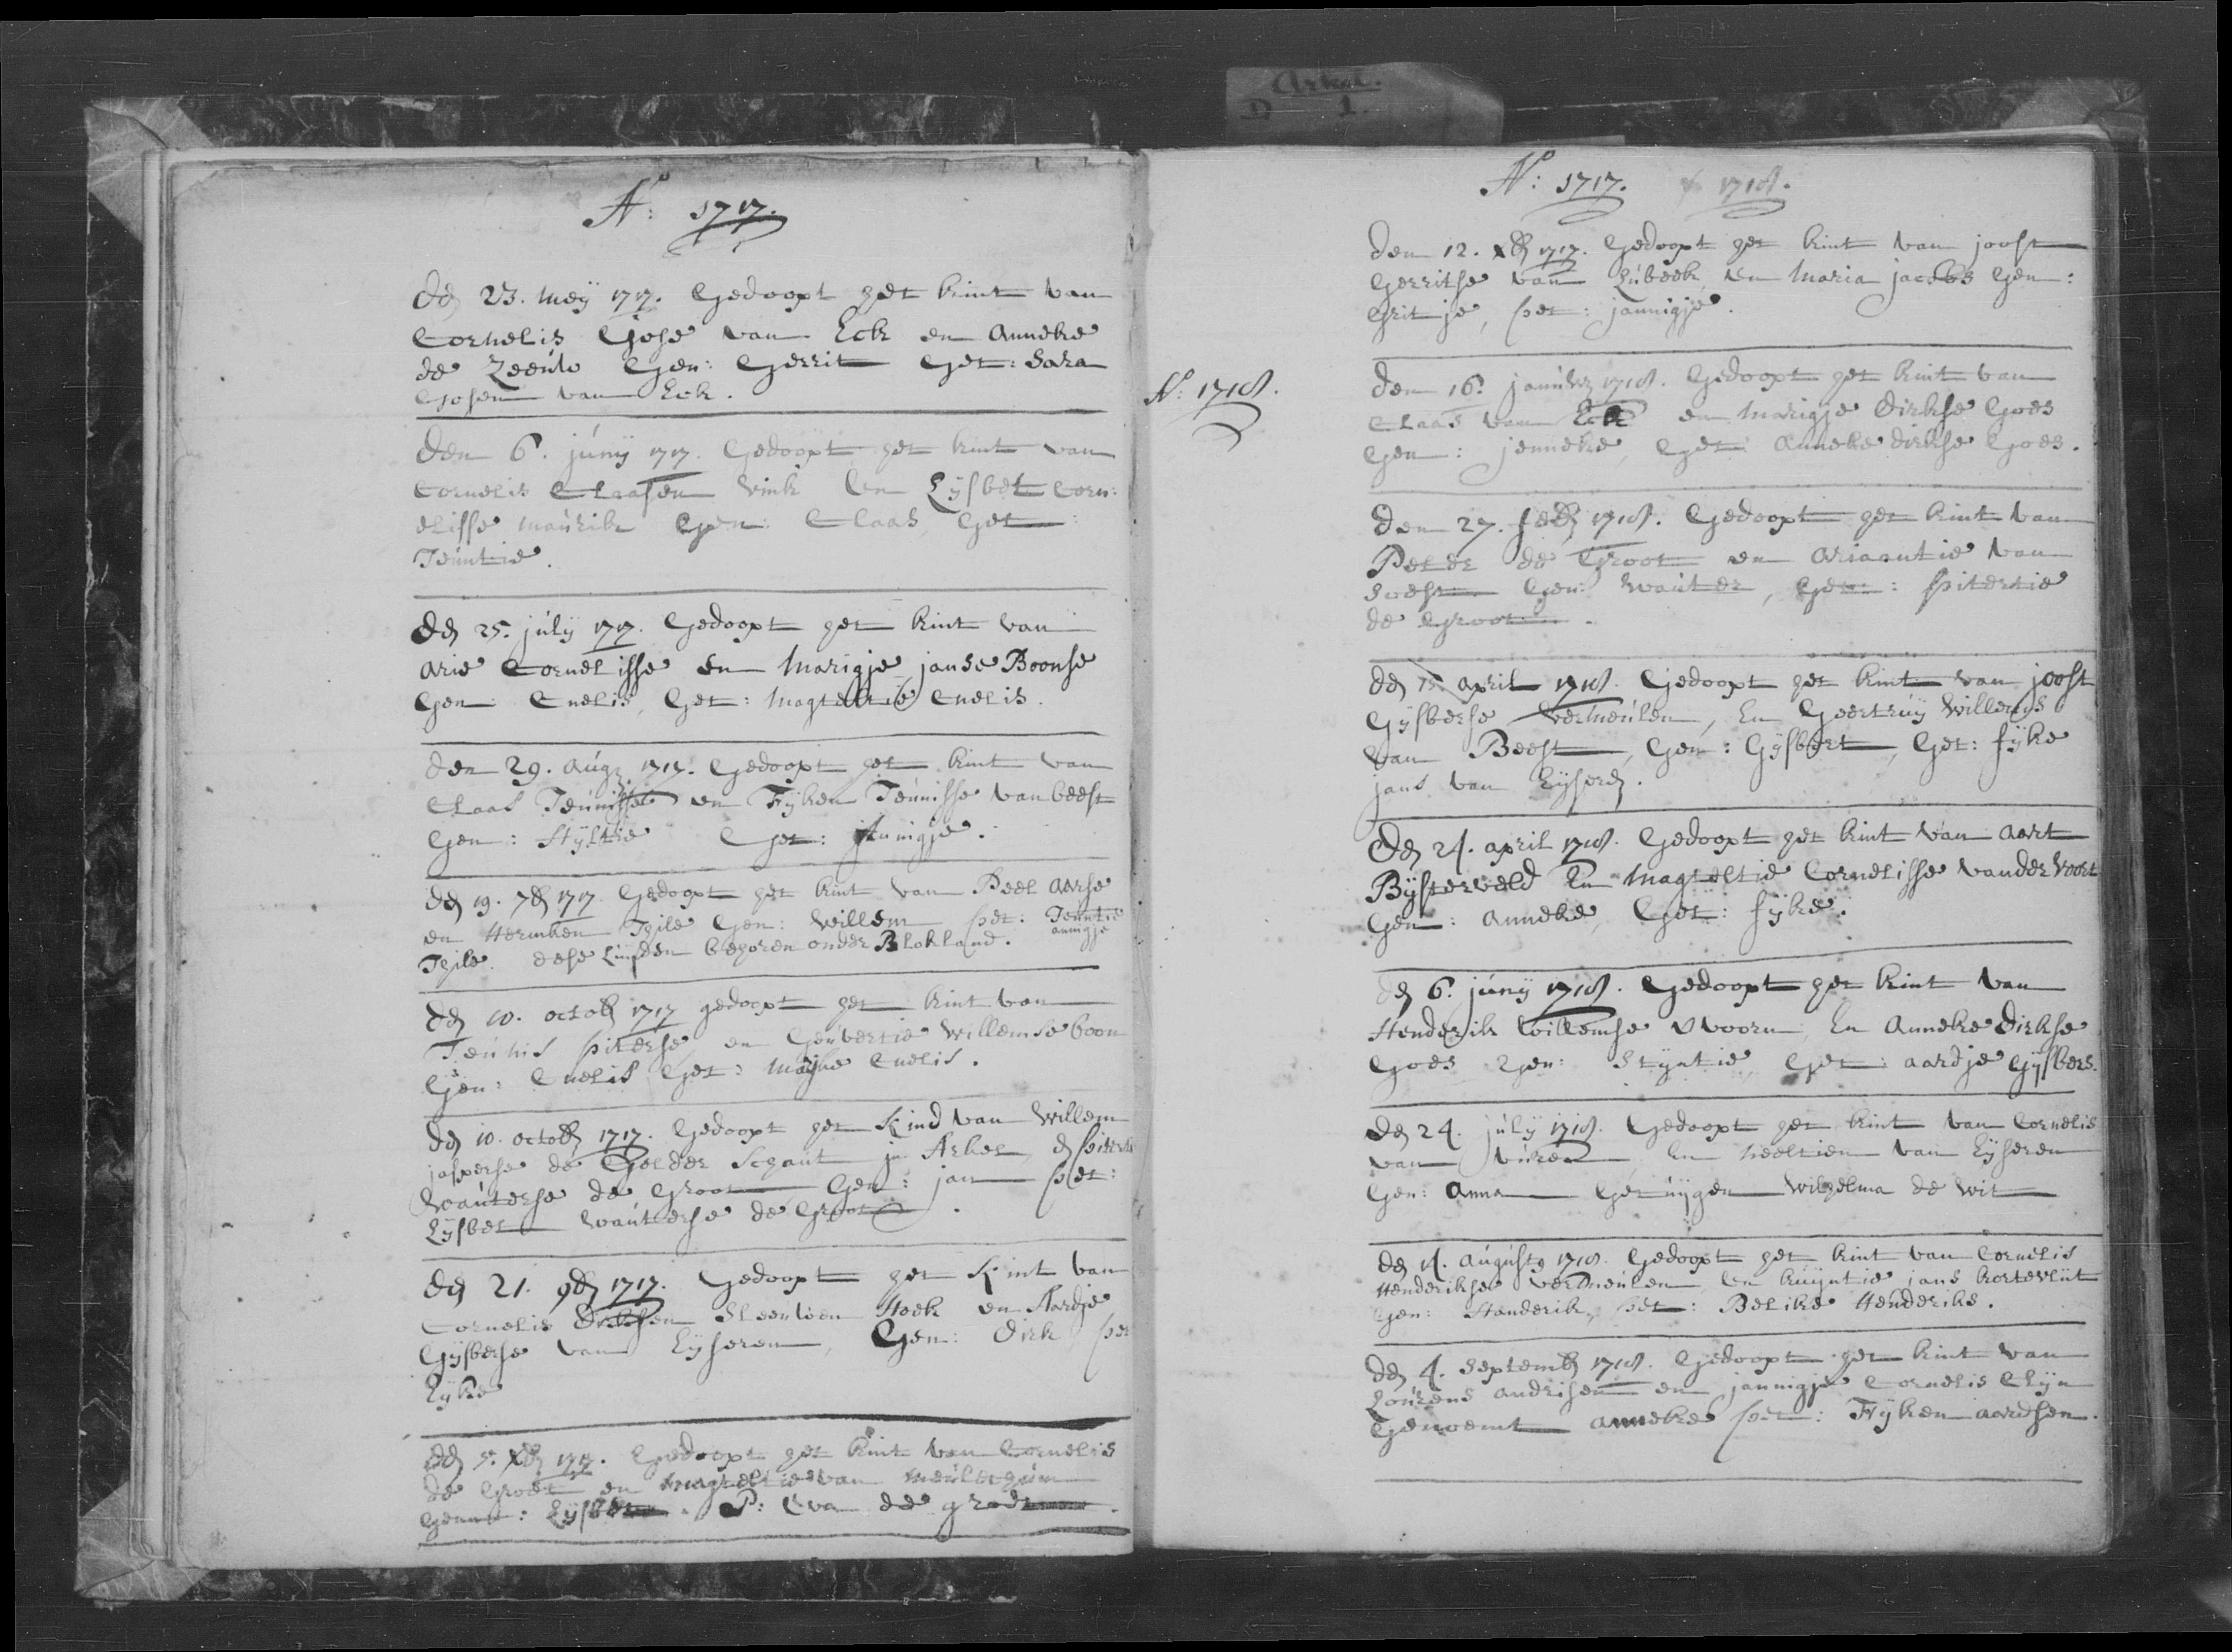 Arkel.
D 1.
A°: 1717.
dē 23. meÿ 1717. Gedoopt het kint van
Cornelis Gose van Eck en Anneke
de Zeeúw Gen: Gerrit Get: Sara
Gosen van Eck.
den 6. júnÿ 1717. Gedoopt het kint van
Cornelis Claasen Vink En Lÿsbet Corn:
elisse Maúrik Gen: Claas, Get:
Teúntie.
dē 25. júlÿ 1717. Gedoopt het kint van
Arie Cornelisse En Marigje janse Boonse
Gen: Cnelis, Get: Magteltie Cnelis.
den 29. Aúg: 1717. Gedoopt het kint van
Claas Teúnisse en Fÿken Teúnisse van beest
Gen: Stÿltie Get: jannigje.
dē 19. 7b 1717. Gedoopt het kint van Peel Aarse
en Hermken Thile Gen: Willem pet: Teúntie
annigje
Thile. dese Luijden behoren onder Blokland.
dē 10. octob 1717 gedoopt het kint van
Teúnis piterse en Geúbertie Willemse boon
Gen: Cnelis Get: Maÿke Cnelis.
dē 10. octob 1717. Gedoopt het Kind van Willem
jasperse de Gelder Schaut in Arkel, &
Waúterse de Groot Gen: jan pet:
Lÿsbet Waúterse de Groot.
dē 21. 9b 1717. Gedoopt het Kint van
Cornelis Dirksen Sleeuwen Hoek en Aardje
Gÿsberse van Eÿseren, Gen: Dirk pet
Eÿke
dē 5. Xb 1717. Gedoopt het kint van Cornelis
de Groot en Magteltie van
Genmt: Lÿsbet. P: Eva de groot.
A°: 1717. & 1718.
den 12. Xb 1717. Gedoopt het kint van joost
Gerritse van Lúbeek en Maria jacobs Gen:
Gritje, pet: jannigje.
A°: 1718.
den 16. janúar 1718. Gedoopt het kint van
Claas van Eck en Marigje Dirkse Goes
Gen: jenneke, Get: Anneke dirkse Goes.
den 27. feb 1718. Gedoopt het kint van
Peter de Groot en Ariaantie van
Soest Gen: Waúter, Get: pitertie
de Groot.
dē 15. April 1718. Gedoopt het kint van joost
Gÿsberse Vermeúlen, En Geertrúÿ Willems
van Beest, Gen: Gÿsbert, Get: fÿke
jans van Eÿserē.
dē 24. april 1718. Gedoopt het kint van Aart
Bÿsterveld En Magteltie Cornelisse vander Voort
Gen: Anneke, Get: fÿke.
dē 6. júnÿ 1718. Gedoopt het kint van
Henderik Willemse Vvoorn, En Anneke Dirkse
Goes Gen: Stÿntie, Get: aardje Gÿsbers.
dē 24. júlÿ 1718. Gedoopt het kint van Cornelis
van Vúren, En Neeltien van Eÿseren
Gen: Anna Getúÿgen Wilhelma de Wit
dē 14. Aúgúst 1718. Gedoopt het kint van Cornelis
Henderikse Vermeúlen, En krijntie jans kortevlút
Gen: Henderik, pet: Belike Henderiks.
dē 4. Septemb 1718. Gedoopt het kint van
Loúrens Andrisen en jannigje Cornelis Clÿn
Genoemt anneke pet: Fÿken aardsen.